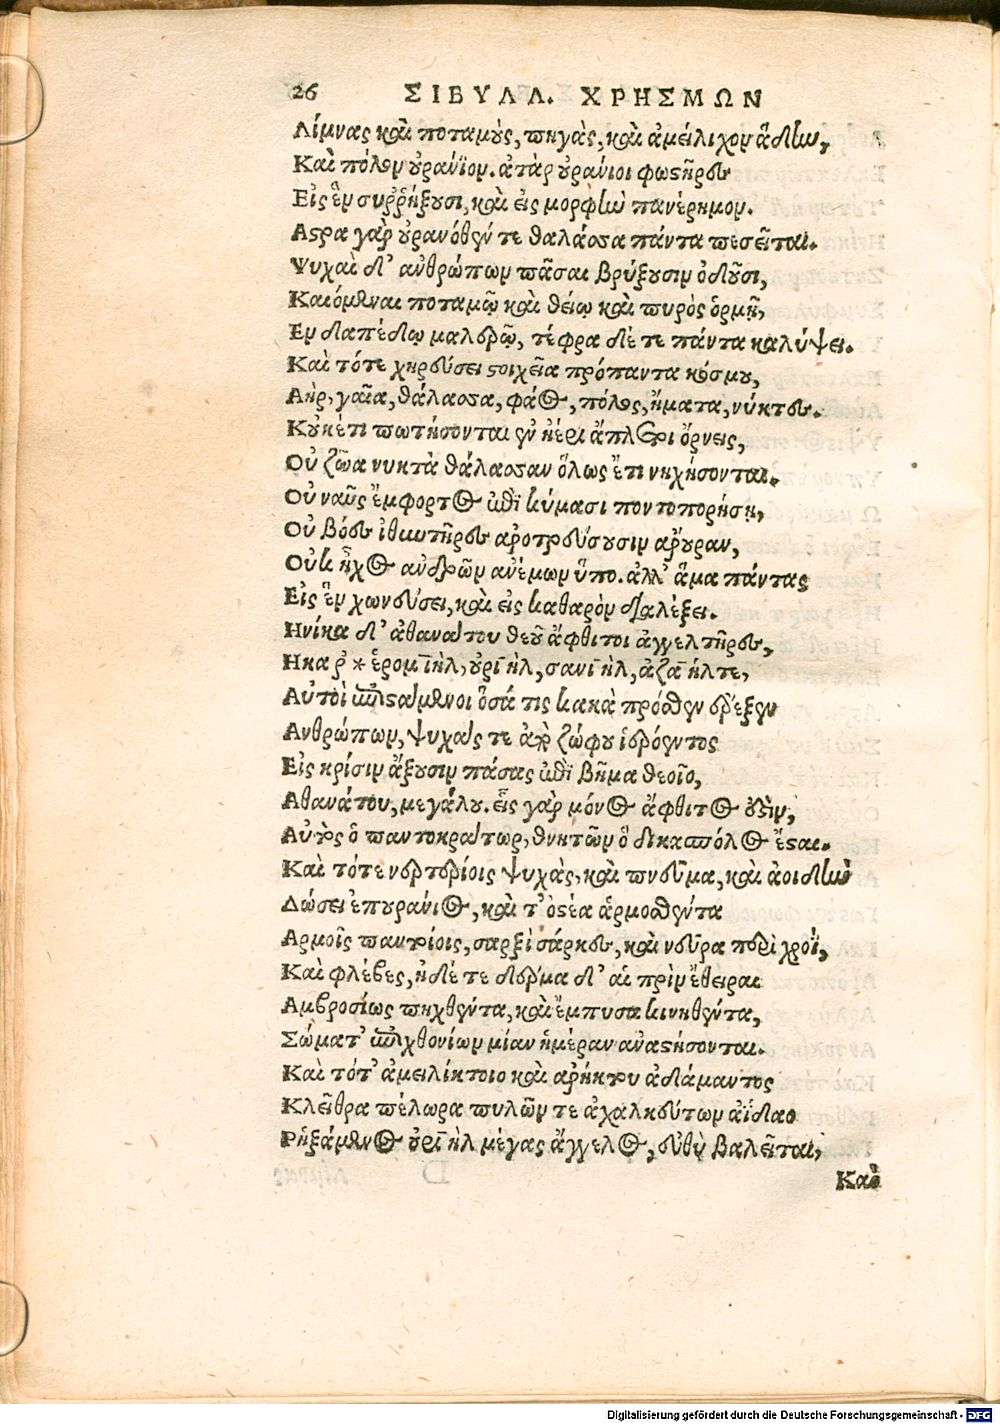 26 ΣΙΒΥΛΛ. ΧΡΗΣΜΩΝ
Λίμνας καὶ ποταμοὺς, πηγὰς, καὶ ἀμείλιχον ἅδην,
Καὶ πόλον οὐράνϊον. ἀτὰρ οὐράνιοι φωστῆρες
Εἰς ἓν συῤῥήξουσι, καὶ εἰς μορφὴν πανέρημον.
Αστρα γὰρ οὐρανόθεν τε θαλάσσα πάντα πεσεῖται.
Ψυχαὶ δ' ἀνθρώπων πᾶσαι βρύξουσιν ὀδοῦσι,
Καιόμεναι ποταμῷ καὶ θείῳ καὶ πυρὸς ὁρμῇ,
Εν δαπέδῳ μαλερῷ, τέφρα δέ τε πάντα καλύψει.
Καὶ τότε χηρεύσει στοιχεῖα πρόπαντα κόσμου,
Αὴρ, γαῖα, θάλασσα, φάος, πόλος, ἤματα, νύκτες.
Κοὐκέτι πωτήσονται ἐν ἠέρι ἄπλετοι ὄρνεις,
Οὐ ζῶα νυκτὰ θάλασσαν ὅλως ἔτι νηχήσονται.
Οὐ ναῦς ἔμφορτος ἐπὶ κύμασι ποντοπορήσῃ,
Οὐ βόες ἰθυντῆρες ἀροτρεύσουσιν ἄρουραν,
Οὐκ ἦχος ἀνδρῶν ἀνέμων ὕπο. ἀλλ' ἅμα πάντας
Εἰς ἓν χωνεύσει, καὶ εἰς καθαρὸν διαλέξει.
Ηνίκα δ' ἀθανάτου θεοῦ ἄφθιτοι ἀγγελτῆρες,
Ηκα ῥ * ἐρομιὴλ, οὐριὴλ, σανιὴλ, ἀζαήλτε,
Αὐτοὶ ἐπιστάμενοι ὅσά τις κακὰ πρόσθεν ἔρεξεν
Ανθρώπων, ψυχαῖς τε ἀπὸ ζώφου ἱερόεντος
Εἰς κρίσιν ἄξουσιν πάσας ἐπὶ βῆμα θεοῖο,
Αθανάτου, μεγάλου. εἷς γὰρ μόνος ἄφθιτος ἐστὶν,
Αὐτὸς ὁ παντοκράτωρ, θνητῶν ὃ δικασπόλος ἔσται.
Καὶ τότε νερτερίοις ψυχὰς, καὶ πνεῦμα, καὶ ἀοιδὴν
Δώσει ἐπουράνιος, καὶ τ' ὀστέα ἁρμοσθέντα
Αρμοῖς παντοίοις, σαρξὶ σάρκες, καὶ νεῦρα περὶ χροῒ,
Καὶ φλέβες, ἠδέ τε δέρμα δ' αἱ πρὶν ἔθειραι
Αμβροσίως πηχθέντα, καὶ ἔμπυσα κινηθέντα,
Σώματ' ἐπιχθονίων μίαν ἡμέραν ἀναστήσονται.
Καὶ τότ' ἀμειλίκτοιο καὶ ἀρήκτου ἀδάμαντος
Κλεῖθρα πέλωρα πυλῶν τε ἀχαλκεύτων ἀΐδαο
Ρηξάμενος οὐριὴλ μέγας ἄγγελος, εὐθὺ βαλεῖται,
Καὶ
Digitalisierung gefördert durch die Deutsche Forschungsgemeinschaft - DFG